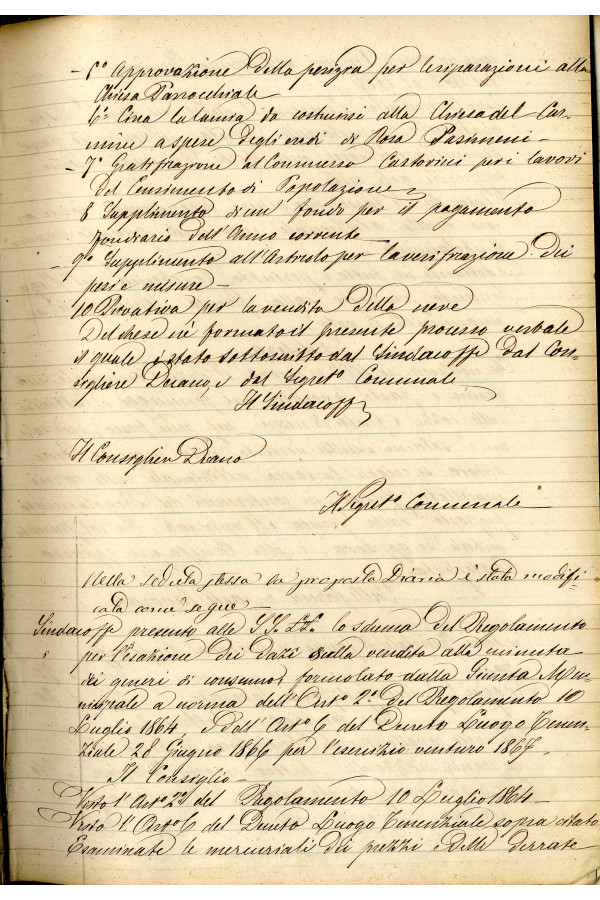 - 5° Approvazione della perizia per le riparazioni alla
Chiesa Parrocchiale
6° Circa la lamia da costruirsi alla Chiesa del Car-
mine a spese degli eredi di Rosa
- 7° Gratificazione al Commesso Castorini per i lavori
del Censimento di Popolazione
8 Supplimento di un fondo per il pagamento
fondiario dell'Anno corrente
- 9° Supplimento all'Articolo per la verificazione dei
pesi e misure -
10 Privativa per la vendita della neve
Del che se n'è formato il presente processo verbale
il quale è stato sottoscritto dal Sindaco ff dal Con-
sigliere Durano, e dal Segret° Comunale
Il Sindaco ff
Il Consigliere Durano
Il Segret° Comunale
Nella seduta stessa la proposta Diaria è stata modifi-
cata come segue -
Sindaco ff presento alle SS. LL. lo schema del Regolamento
per l'esazione dei dazi sulla vendita alla minuta
dei generi di consumo, formolato dalla Giunta Mu-
nicipale a norma dell'Art° 2° del Regolamento 10
Luglio 1864, e dell'Art° 6 del Decreto Luogo Tenen-
ziale 28 Giugno 1866 per l'esercizio venturo 1867,
Il Consiglio -
Visto l'Art° 2° del Regolamento 10 Luglio 1864 -
Visto l'Art° 6 del Decreto Luogo Tenenziale sopra citato
Esaminate le mercuriali dei prezzi delle derrate